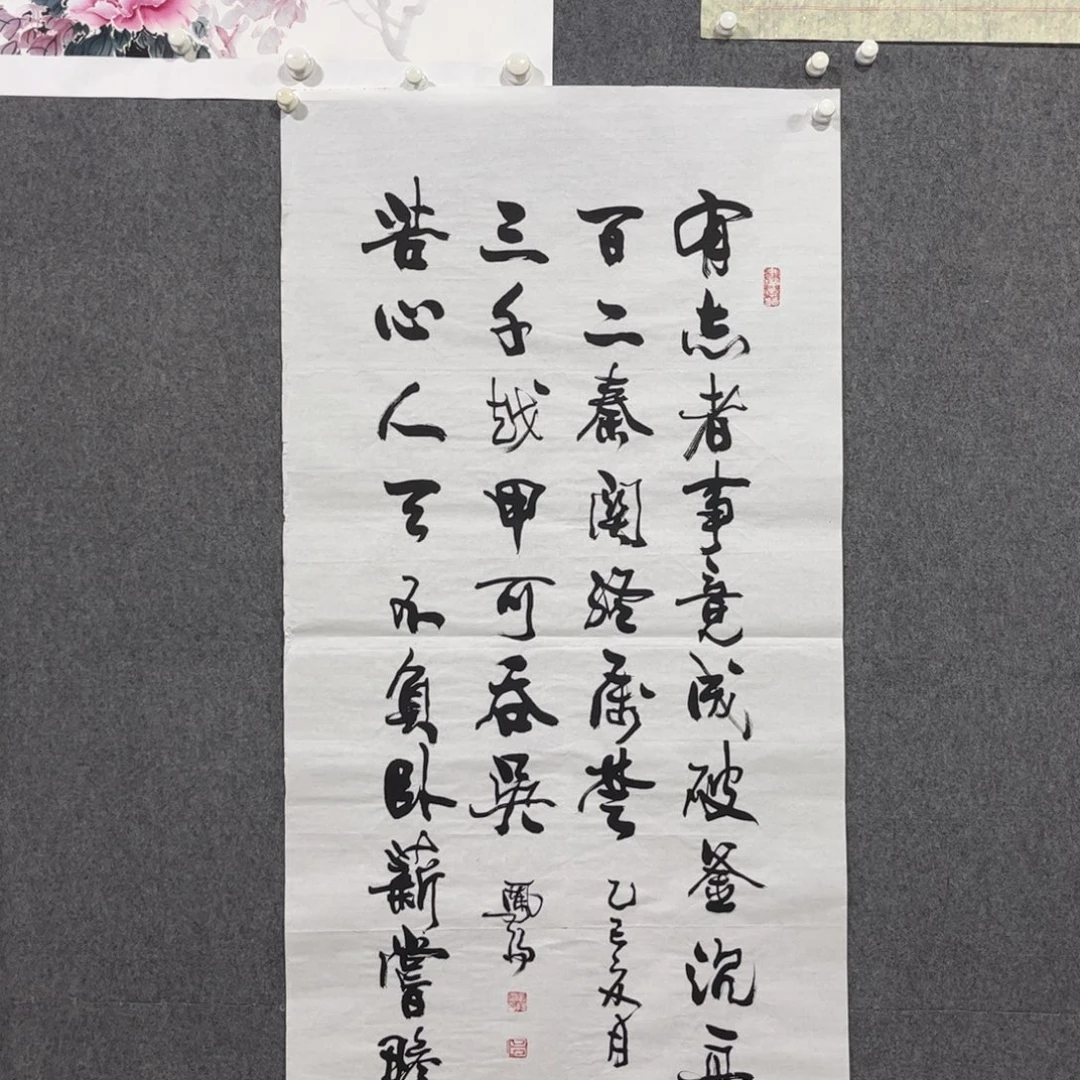 有志者事竟成破釜沉舟
百二秦関終属楚
乙巳夏月
苦心人天不負卧薪嘗膽
三千越甲可吞吳